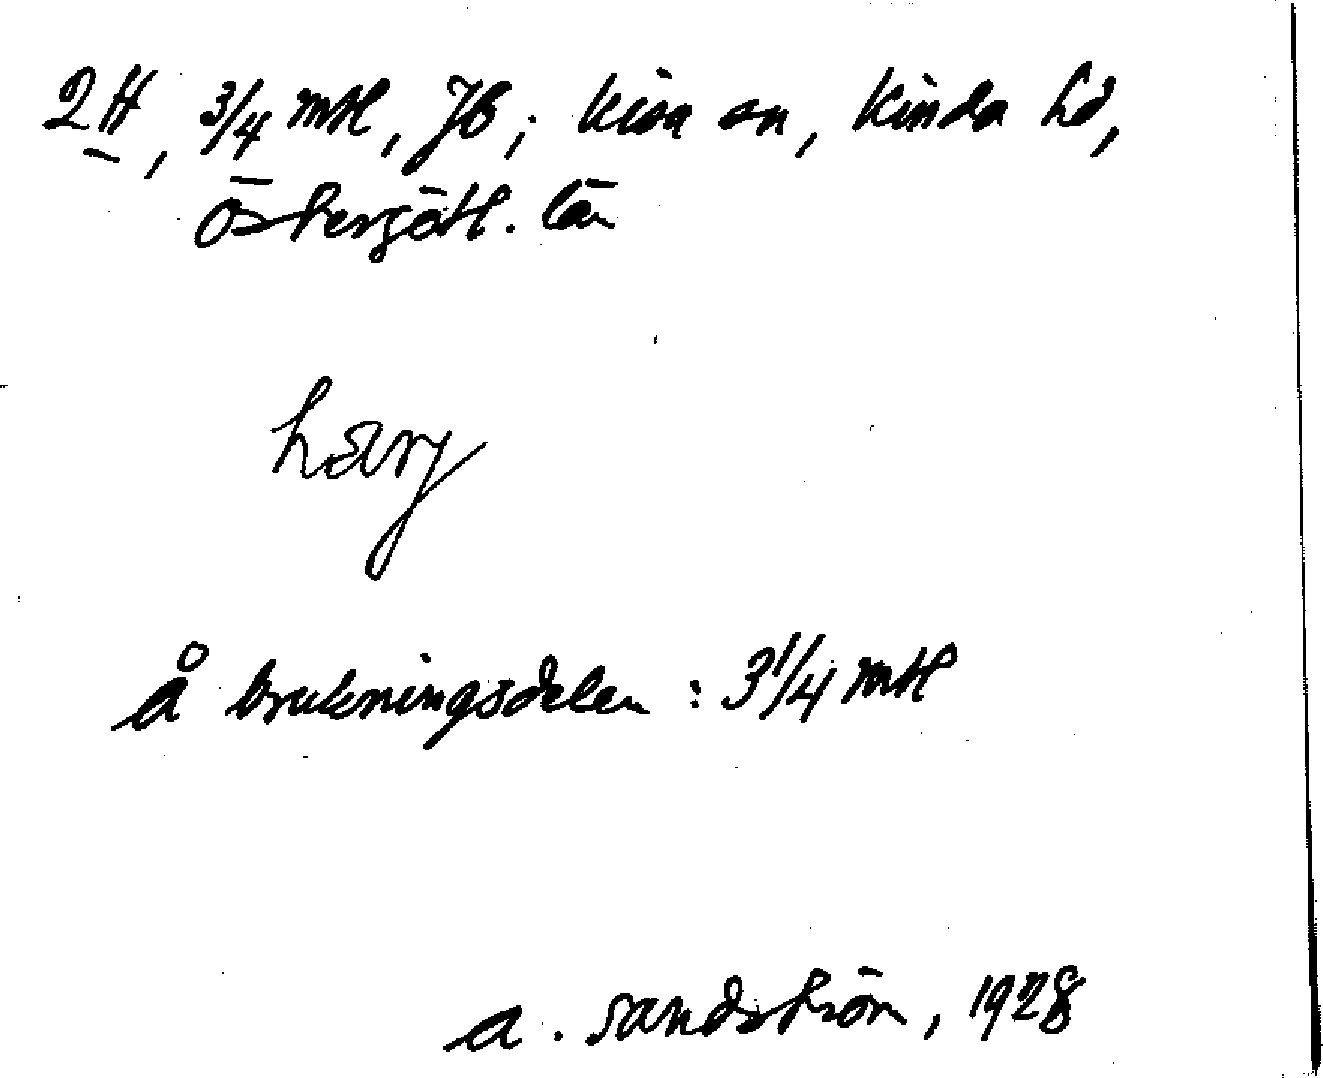 2 H, 3/4 mtl, JB; Kisa sn, Kinda hd,
Östergötl. län
hæ̂rj
å brukningsdelen : 3 1/4 mtl
A. Sandström, 1928